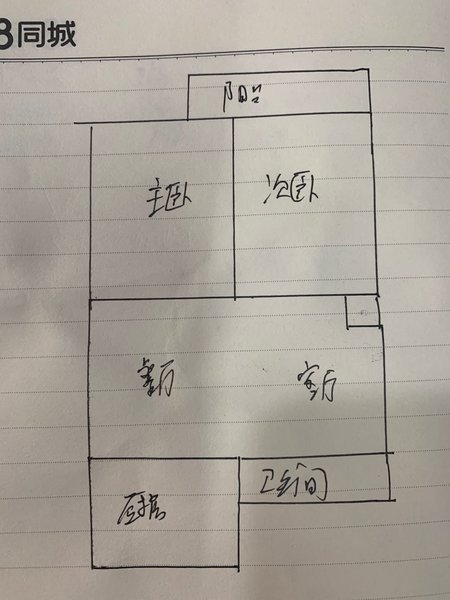 8同城
阳台
主卧 次卧
餐厅 客厅
厨房 卫生间